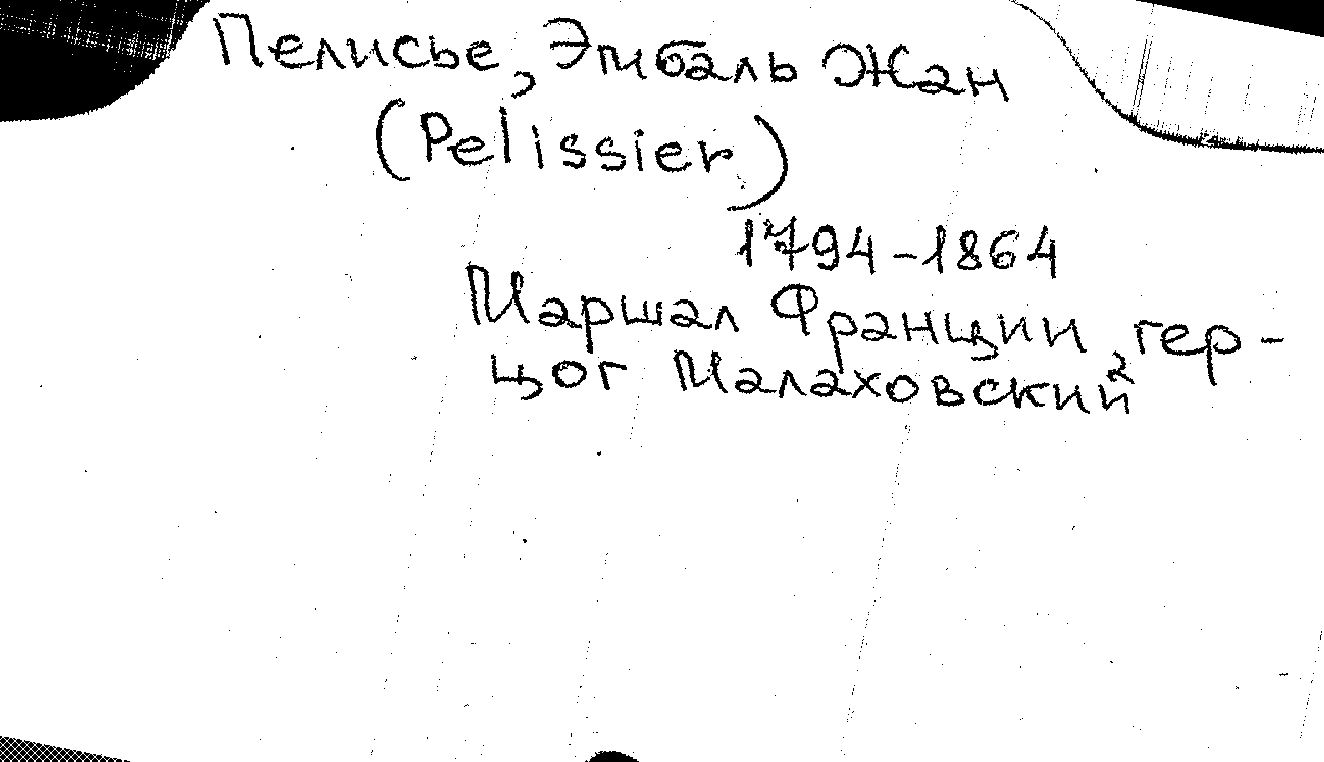 Пелисье, Эмбаль Жан
(Pelissier)
1794-1864
Маршал Франции, гер-
цог Малаховский